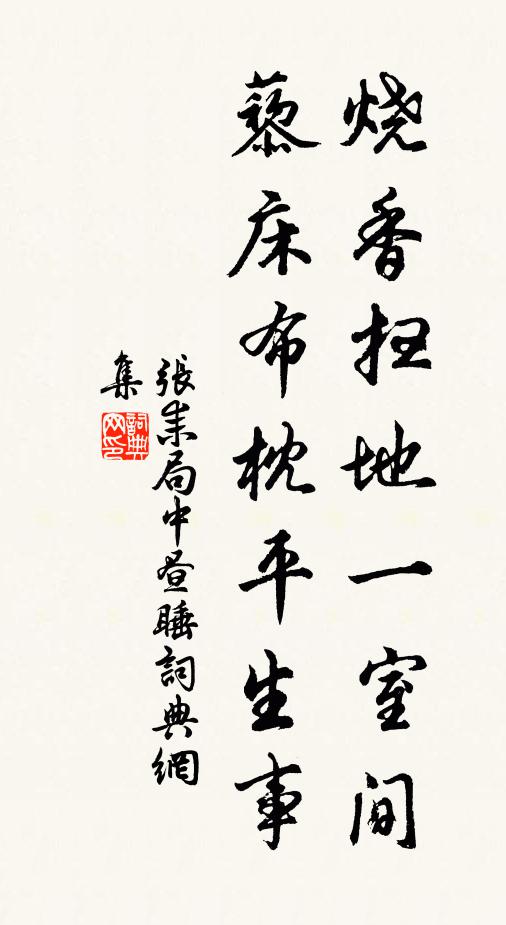 烧香扫地一室间
藜床布枕平生事
張耒局中昼睡詞典網
集
詞典
网印